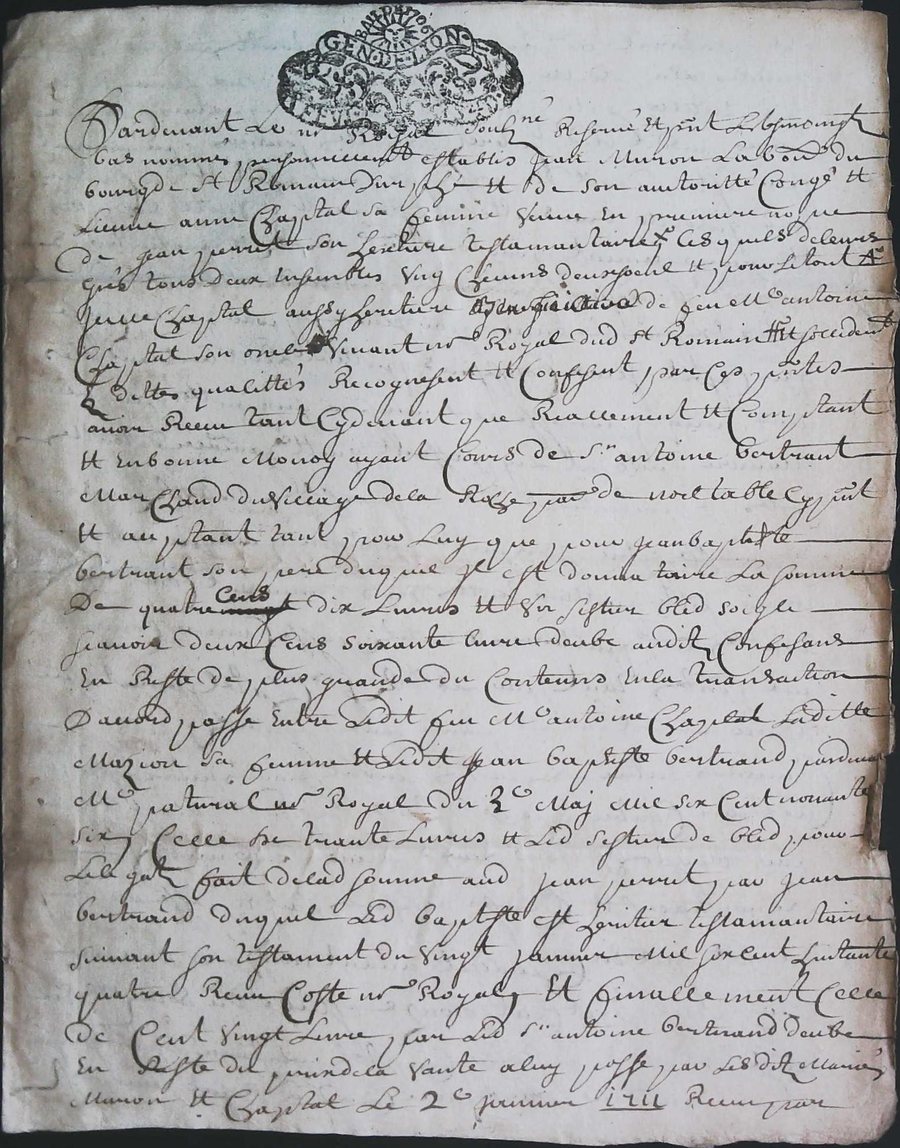 BAIL DE 1706
GEN·DE·LION
Pardevant Le nre Royal soubz né Reservé Et pnt Les tesmoingt
bas nommés personnellemt establis jean Muron La bou du
bourg de St Romain Durphé Et de son auttoritté Congé Et
Licence anne Chaptal sa femme veuve En premiere nopce
De jean perret son heritiere testamantaire Lesquels de leurs
grés tous deux Ensembles Ung Chacuns deux seul Et pour Le tout
Chaptal aussy heritiere de feu Me antoine
Chaptal son oncle vivant nre Royal dud St Romain Et procedent
Esdittes qualittés Recognesent Et Confesent par Ces pntes
avoir Receu tant Cydevant que Reallement Et Comptant
Et En bonne Monoy ayant Cours de Sr antoine bertrant
Marchand du village de la Rosse parr de noirtable Cy pnt
Et aceptant tant pour Luy que pour jean baptiste
bertrant son pere duquel jl est donnataire La somme
De quatre Cens dix Livres Et un sestier bled soigle
scavoir deux Cens soixante livre deube audit Confesans
En Reste de plus grande du Contenus En la transaction
D'accord passe Entre Ledit feu Me antoine Chaptal Laditte
Mazion sa femme Et Ledit jean baptiste bertrand pardevant
Me patural nre Royal du 2e Maj Mil six Cent nonante
six Celle de trante Livres Et Led sestier de bled pour
Le legat fait de lad somme aud jean perret par jean
bertrand duquel Led baptiste est heritier testamantaire
suivant son testament du vingt janvier Mil six Cent huitante
quatre Receu Coste nre Royal Et finallement Celle
de Cent vingt Livre par Led Sr antoine bertrand deube
En Reste du prix de la vante a luy passe par Lesdit Mariés
Muron Et Chaptal Le 2e janvier 1711 Receu par